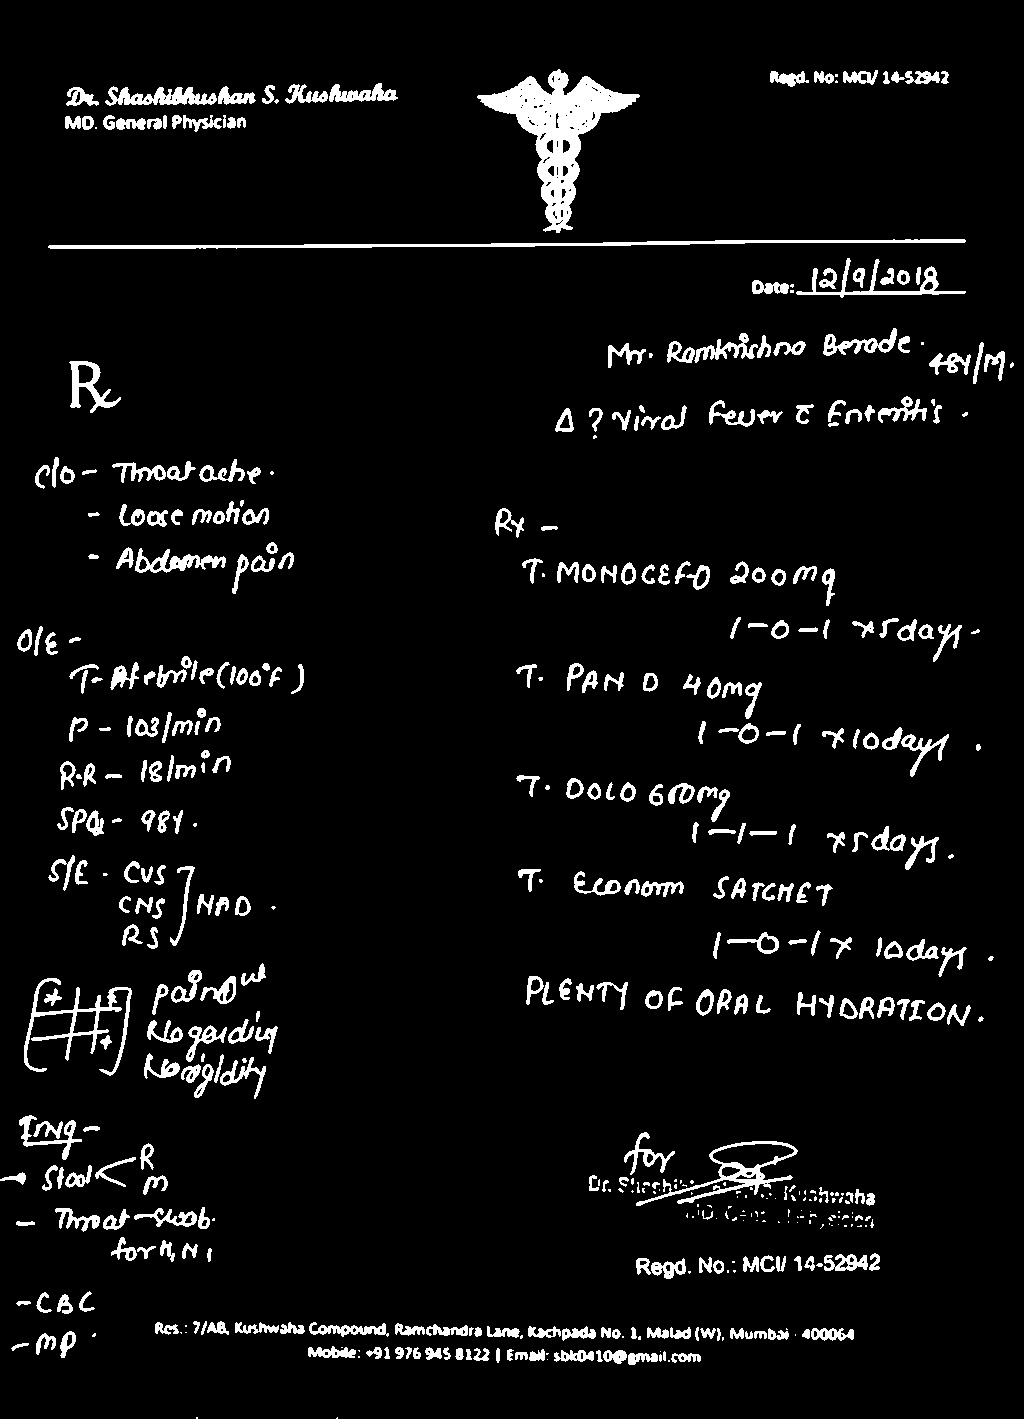 Dr. Shashibhushan S. Kushwaha
MD. General Physician
Regd. No: MCI/ 14-52942
Date: 12/9/2018
Mr. Ramkrishna Berade. 48Y/M.
Rx
Δ ? Viral Fever c̄ Enteritis.
C/O - Throat ache.
- Loose motion
- Abdomen pain
O/E -
T- Afebrile (100°F)
P - 103/min
R.R - 18/min
SPO2 - 98%.
S/E - CVS
CNS
RS
NAD.
pain
No garding
No rigidity
Invg -
→ Stool < R
M
- Throat swab
for H1N1
- CBC
- MP
Rx -
T. MONOCEF-O 200mg
1-0-1 x 5 days.
T. PAN D 40mg
1-0-1 x 10 days.
T. DOLO 650mg
1-1-1 x 5 days.
T. Econorm SATCHET
1-0-1 x 10 days.
PLENTY OF ORAL HYDRATION.
for
Dr. Shashibhushan S. Kushwaha
MD. General Physician
Regd. No.: MCI/ 14-52942
Res.: 7/AB, Kushwaha Compound, Ramchandra Lane, Kachpada No. 1, Malad (W), Mumbai - 400064
Mobile: +91 976 945 8122 | Email: sbk0410@gmail.com